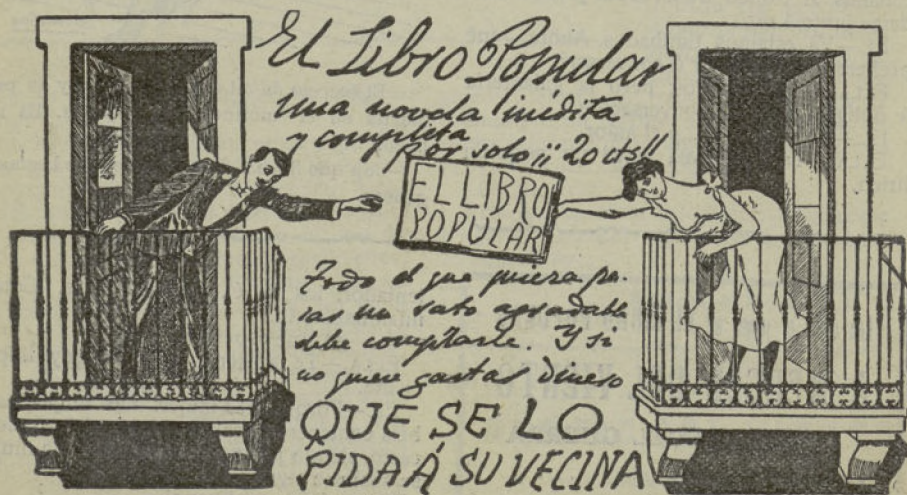 El Libro Popular
Una novela inédita
y completa
por solo ¡¡ 20 cts!!
EL LIBRO
POPULAR
Todo el que quiera pa-
sar un rato agradable
debe comprarle. Y si
no quiere gastar dinero
QUE SE LO
PIDA Á SU VECINA